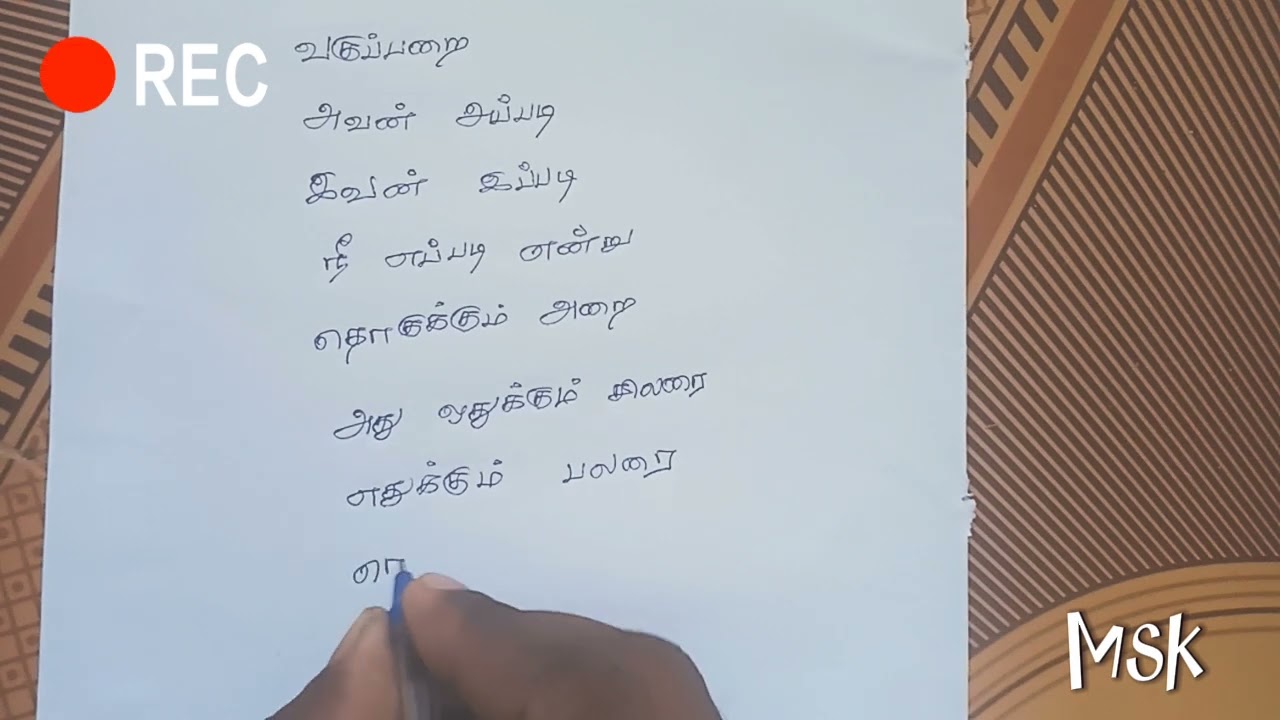 REC
வகுப்பறை
அவன் அப்படி
இவன் இப்படி
நீ எப்படி என்று
தொகுக்கும் அறை
அது ஒதுக்கும் சிலரை
எதுக்கும் பலரை
MSK